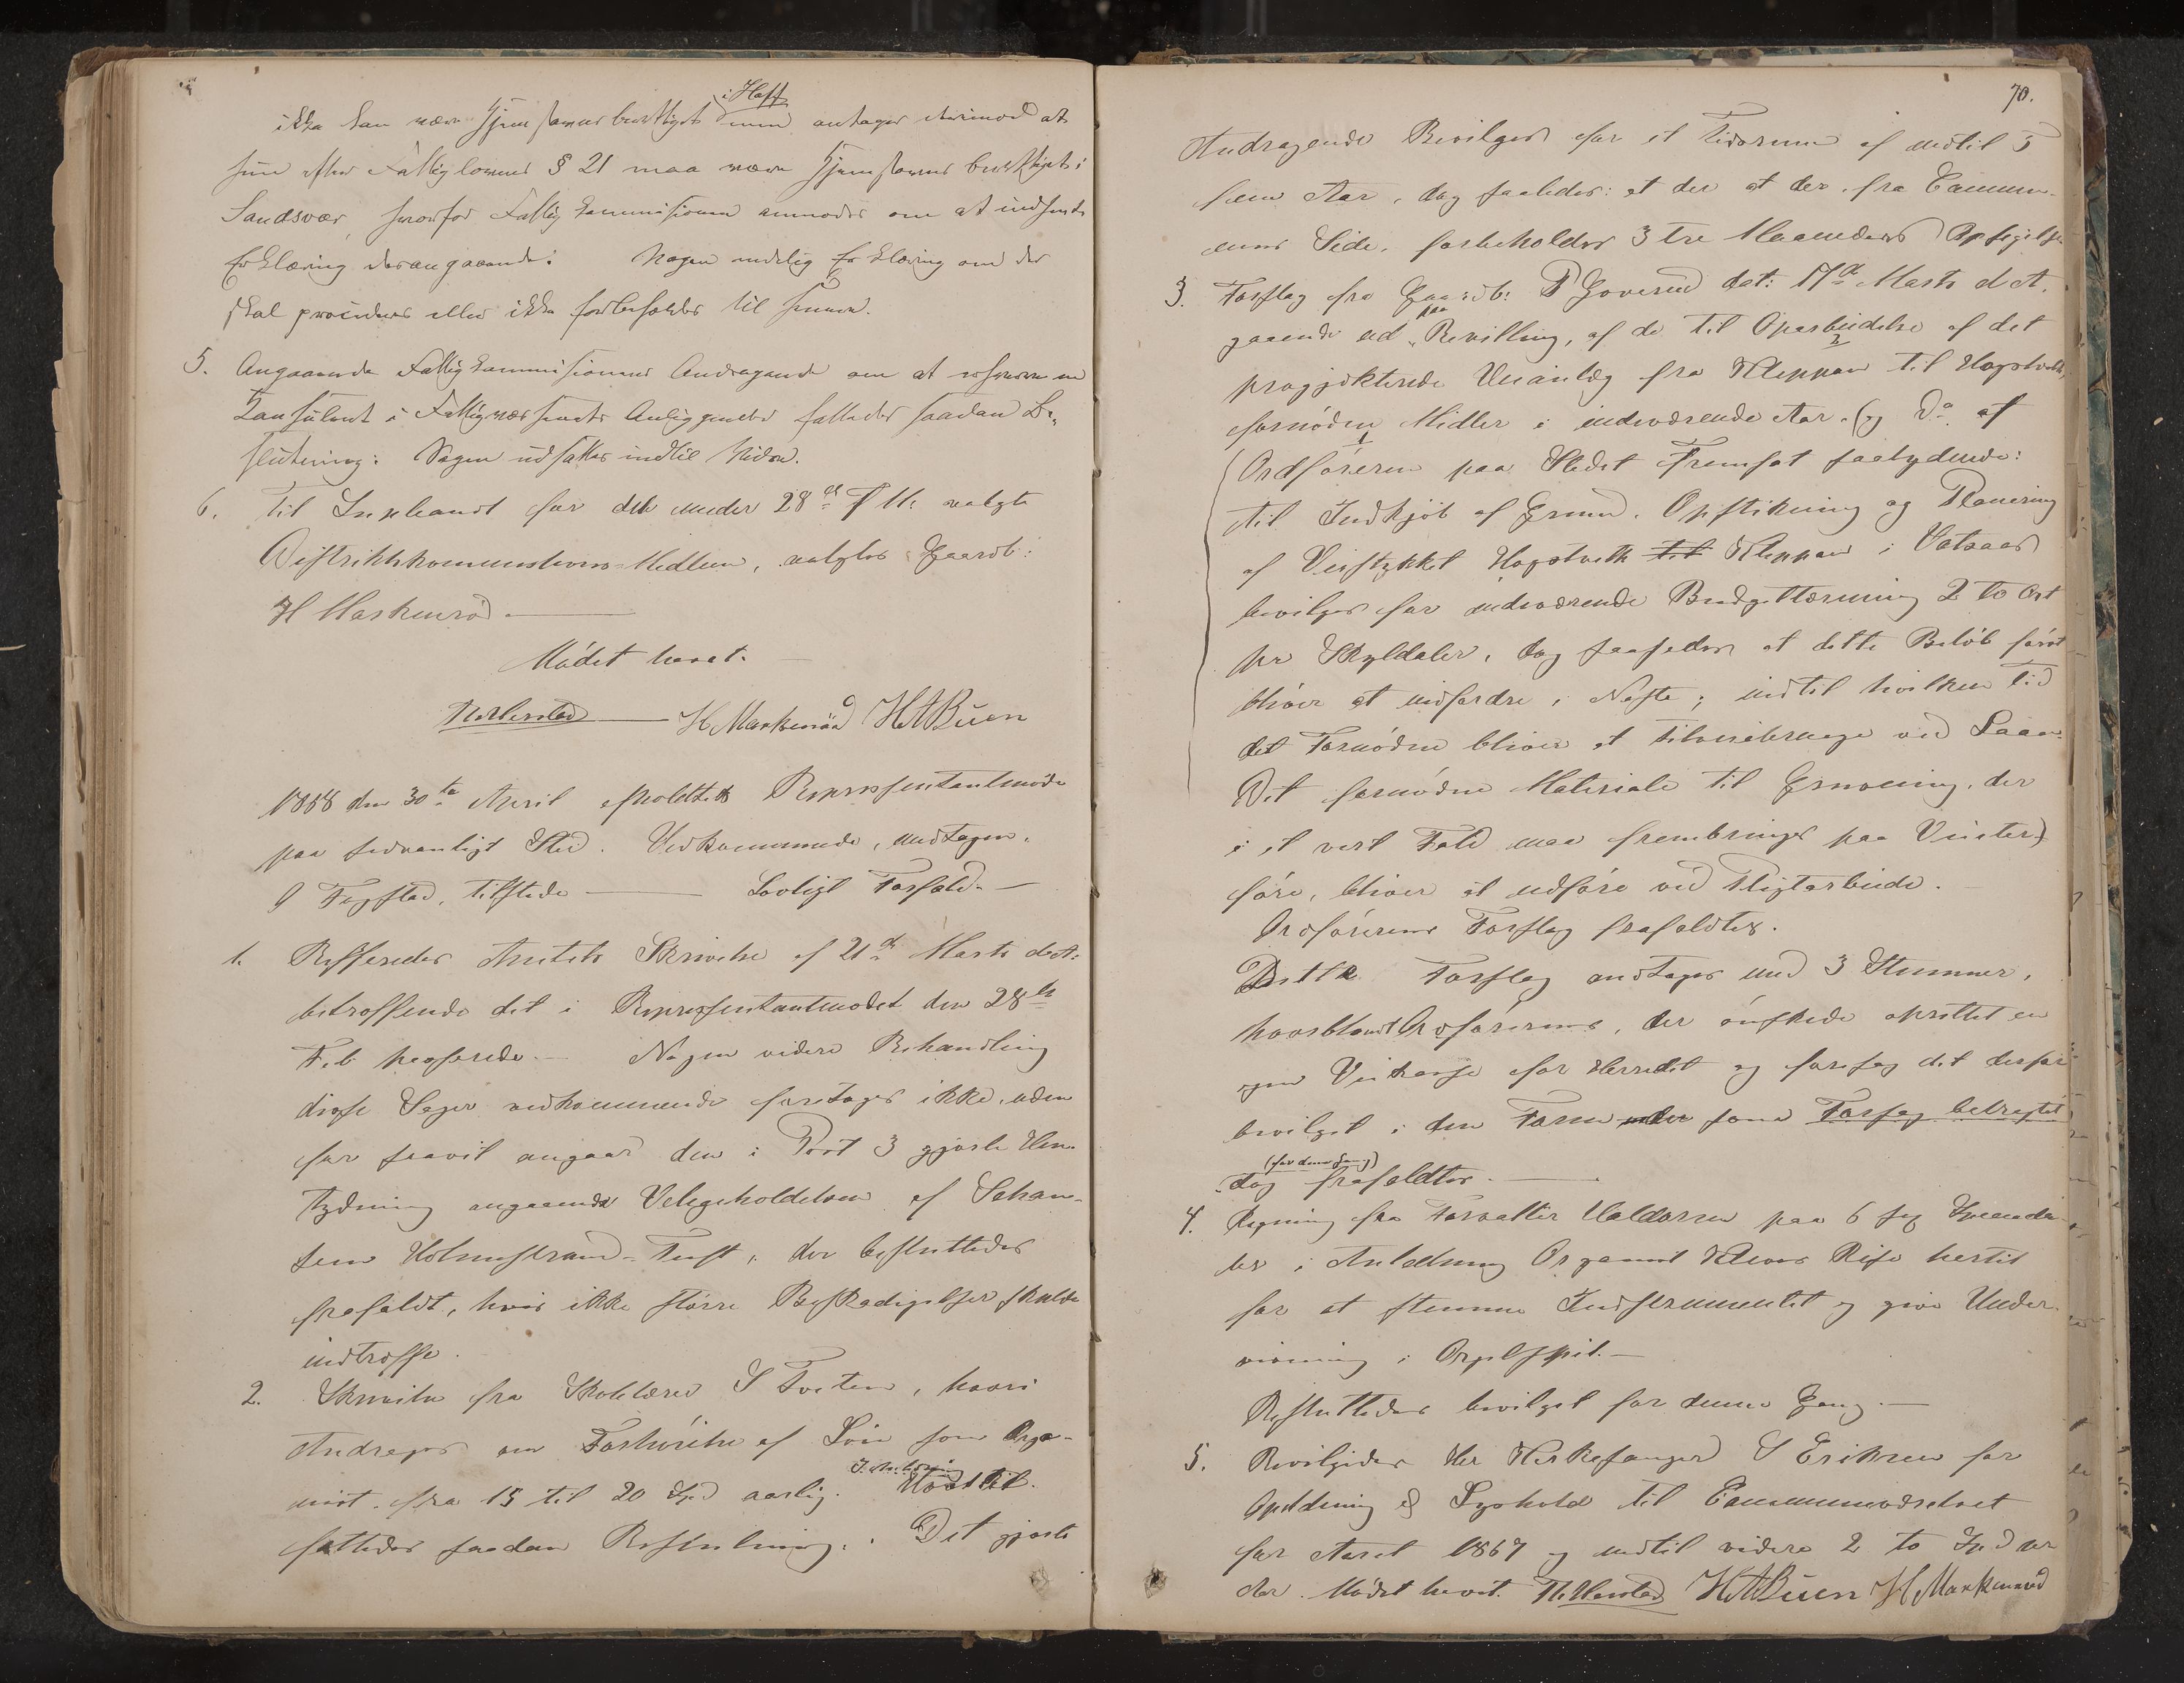 i Haff
ikke kan være hjemstavnsberettiget men antages derimod at
hun efter Fattiglovens § 21 maa være hjemstavnsberettiget i
Sandsvær, hvorfor Fattigkommissionen anmodes om at indhente
Erklæring desangaaende. Nogen endelig Erklæring om der
skal procederes eller ikke forbeholdes til senere.
5. Angaaende Fattigkommissionens Andragende om at erhverve en
Konsulent i Fattigvæsenets Anliggender fattedes saadan Be-
slutning: Sagen udsættes indtil Videre.
6. Til Suppleant for det under 28de f. M. valgte
Distriktskommissions-Medlem, valgtes Gaardb:
H Maskenrød.
Mødet hævet.
H Maskenrød HABuen
1868 den 30te April afholdtes Repræsentantmøde
paa sedvanligt Sted. Vedkommende, undtagen
Fegstad, tilstede Lovligt Forfald.
1. Refferedes Amtets Skrivelse af 21de Marts d. A.
betræffende det i Repræsentantmødet den 28de
Feb. passerede. Nogen videre Behandling
disse Sager vedkommende foretages ikke, uden
for saavit angaar den i Post 3 gjorte Hen-
tydning angaaende Veligeholdelsen af Schau-
seen Holmestrand-Tuft, der besluttedes
frafaldt, hvis ikke større Beskadigelser skulde
indtræffe.
2. Skrivelse fra Skolelærer S Tveten, hvori
Andrages om Forhøielse af Løn som Orga-
nist fra 15 til 20 Spd aarlig.
fattedes saadan Beslutning: Det gjorte
70.
Andragende Bevilges for et Tidsrum af indtil 5
fem Aar, dog saaledes: at der fra Commu-
nens Side forbeholdes 3 tre Maaneders Opsigelse
3. Forslag fra Gaardb: P Goverud dat: 17de Marts d. A.
gaaende ud paa Bevilling, af de til Oparbeidelse af det
progjekterede Veianlæg fra Kleppan til Hapstveth,
fornødne Midler i indeværende Aar. (og Do af
Ordføreren paa Stedet Fremsat saalydende:
til Indkjøb af Grund, Opstikning og Planering
af Veistykket Hapstveth til Kleppan i Vatsaas
bevilges for indeværende Budgettermin 2 to Ort
pr Skyldaler, dog saaledes at dette Beløb først
bliver at indfordre i Næste; indtil hvilken Tid
det Fornødne bliver at tilveiebringe ved Laan.
Det fornødne Materiale til Grusning, der
i et vert Fald maa frembringes paa Vinter-
føre, bliver at udføre ved Pligtarbeide.
Ordførerens Forslag frafaldtes.
Dette Forslag antages med 3 Stemmer,
hvoriblandt Ordførerens, der ønskede oprettet en
egen Veikasse for Herredet og
bevilget i den Form som Forslag betragtet
(for denne Gang)
dog frafaldtes.
4. Regning fra Forvalter Haldorsen paa 6 sex Speciedaler
i Anledning Organist Kleves Reise hertil
for at stemme Instrumentet og give Under-
visning i Orgelspil.
Besluttedes bevilget for denne Gang.
5. Bevilgedes Her Kirkesanger S Eriksen for
Opvarmning & Lyshold til Communeværelset
for Aaret 1867 og indtil videre 2 to Spd per
Aar. Mødet hævet. HABuen H Maskenrød